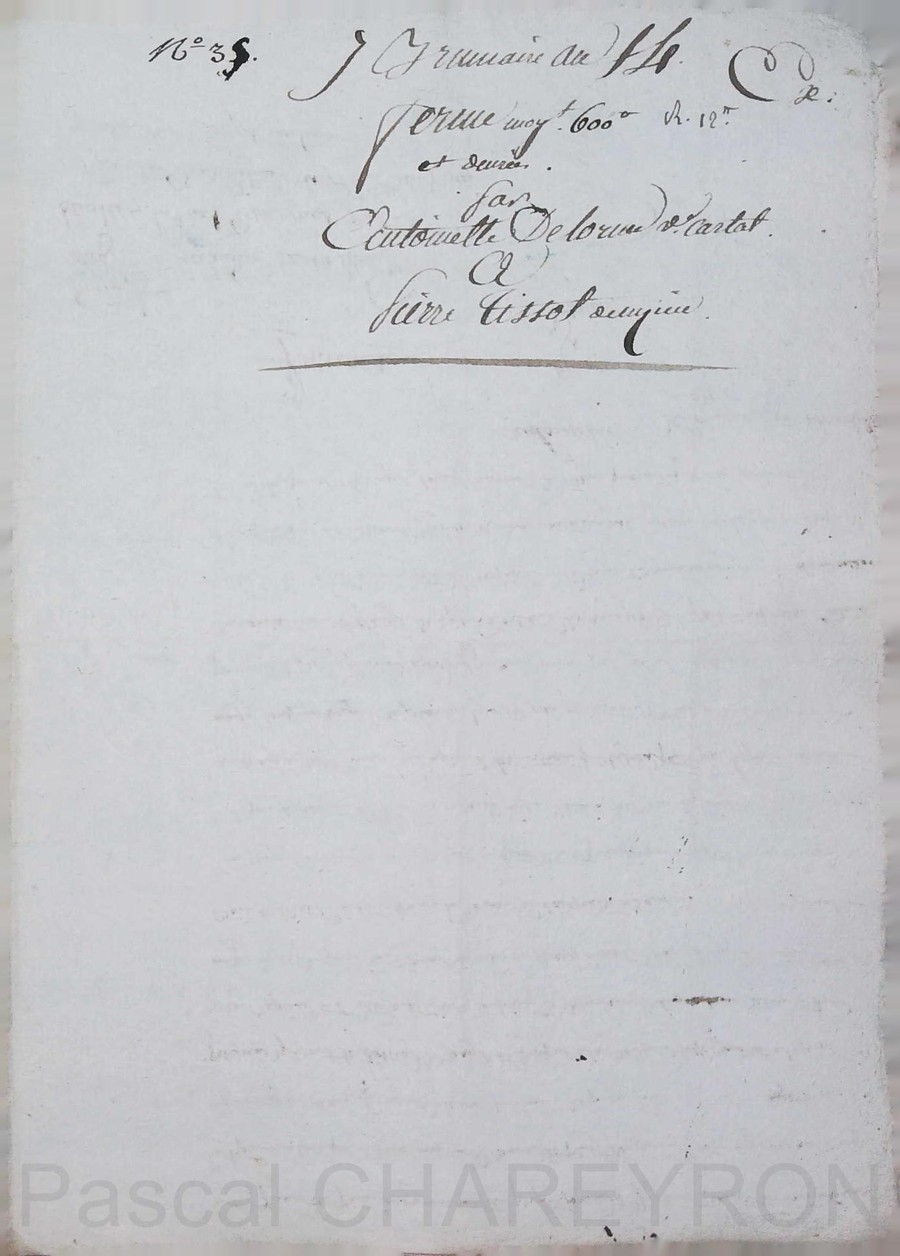 N° 35.
7 Brumaire an 14.
ferme moyt. 600# R. 12#
et denrées.
par
Antoinette Delorme ve. cartal.
A
pierre tissot
Pascal CHAREYRON